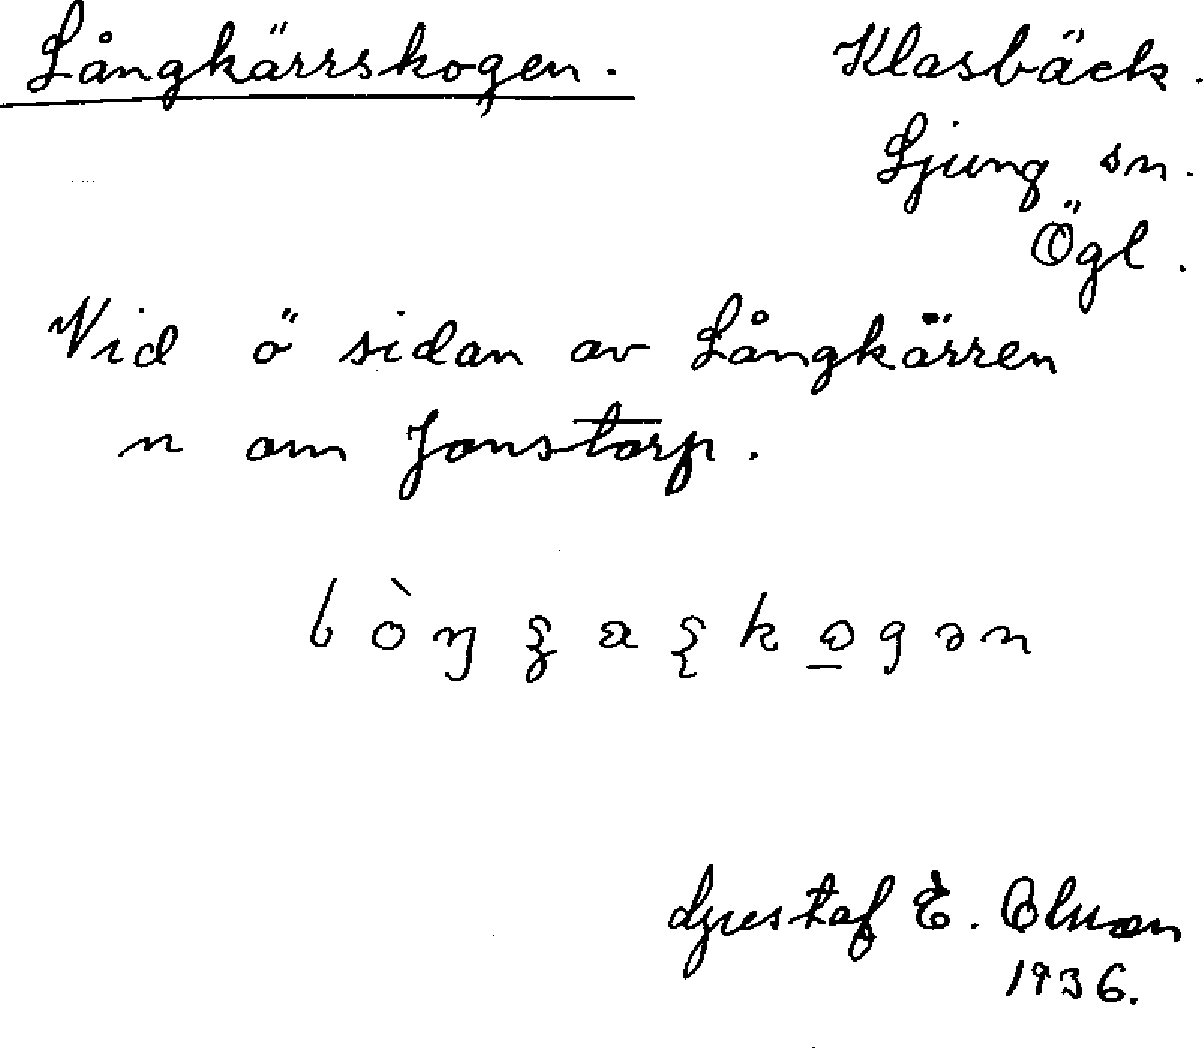 Långkärrskogen. Klasbäck.
Ljung sn.
Ögl.
Vid ö sidan av Långkärren
n om Jonstorp.
Gustaf E.
1936.